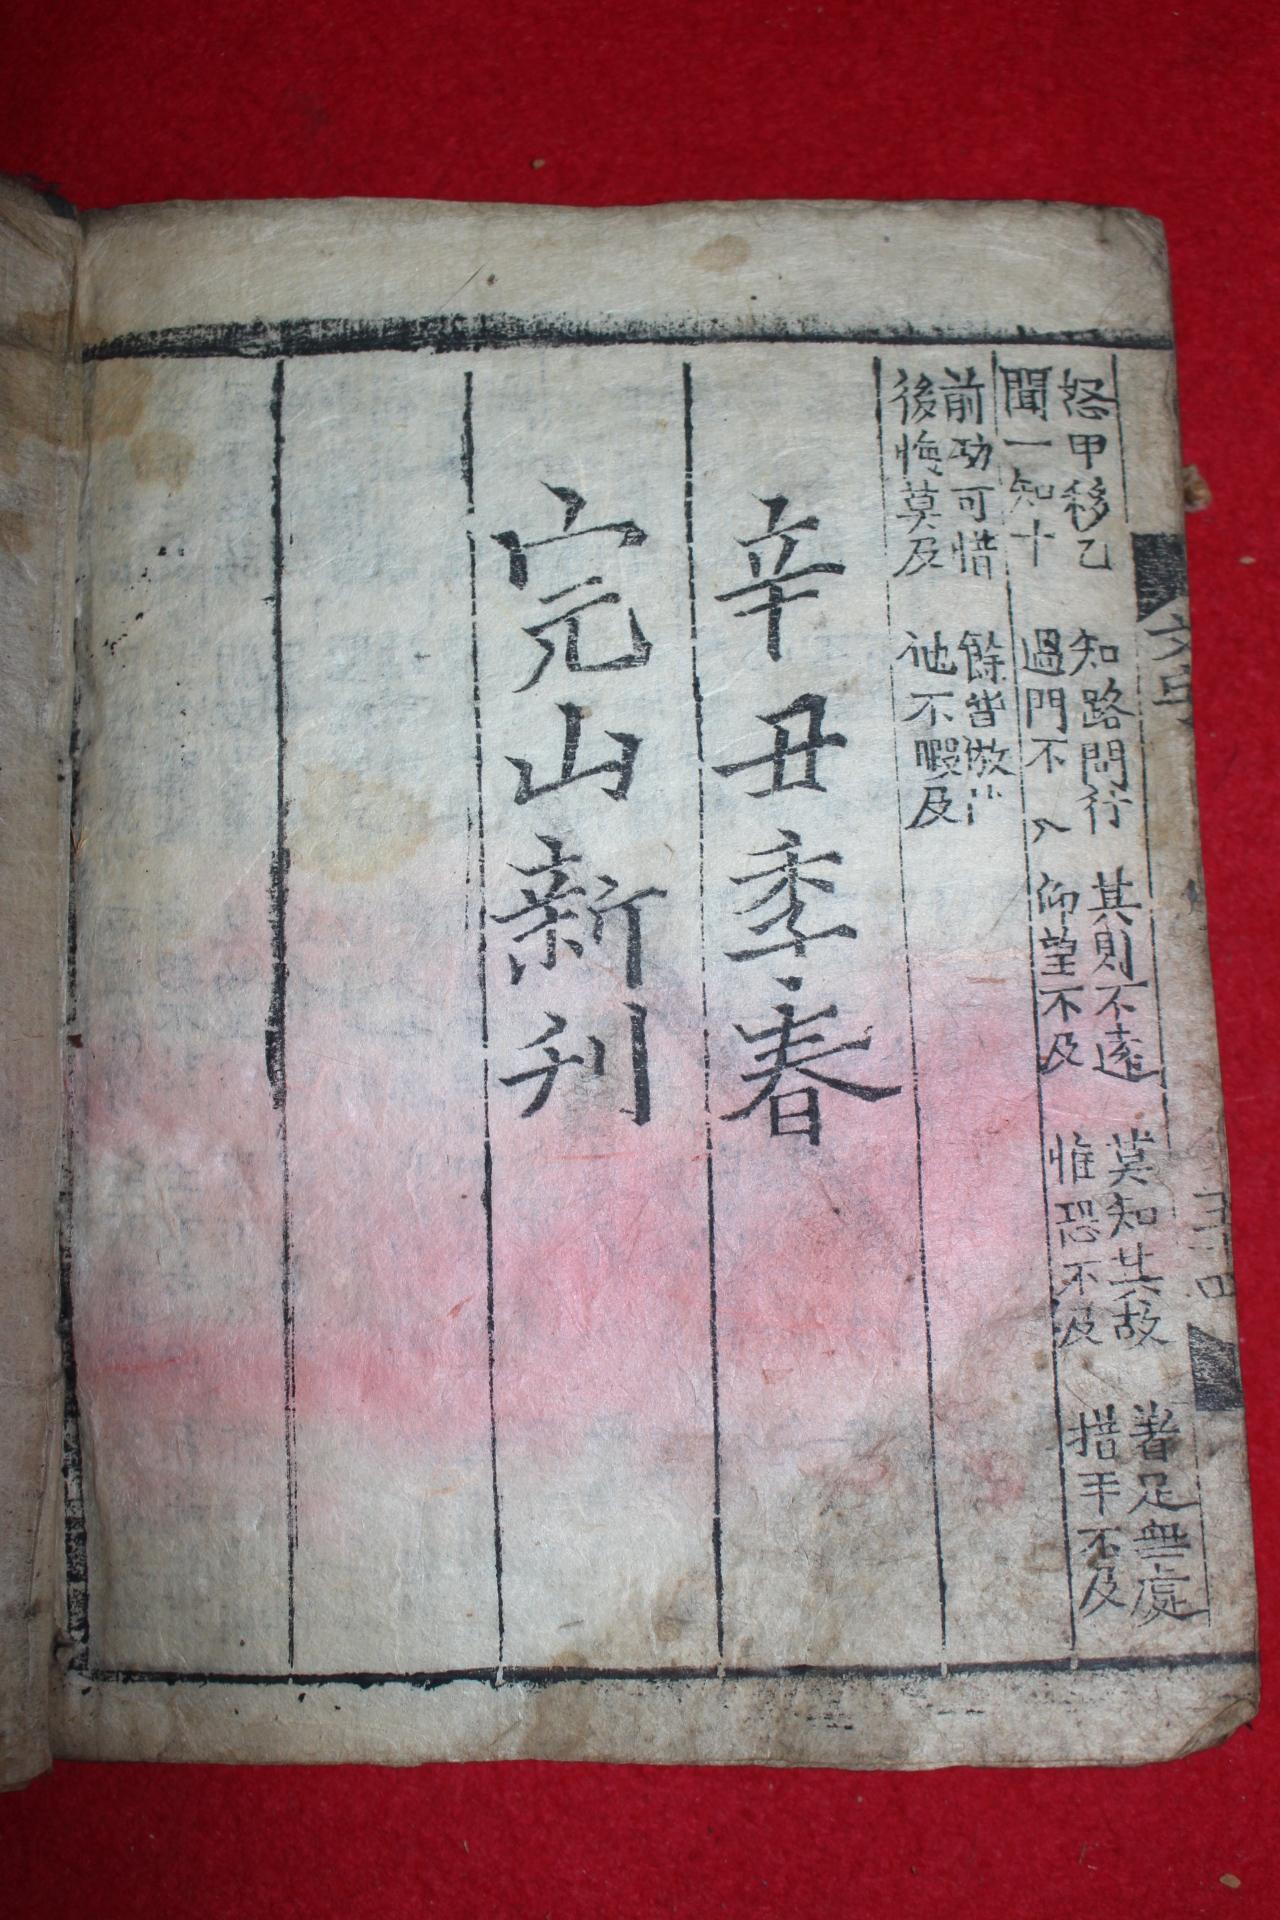 怒甲移乙 知路問行 其則不遠 莫知其故 着足無處
聞一知十 過門不入 仰望不及 惟恐不及 措手不及
前功可惜 餘皆倣
後悔莫及 他不暇及
辛丑季春
完山新刋